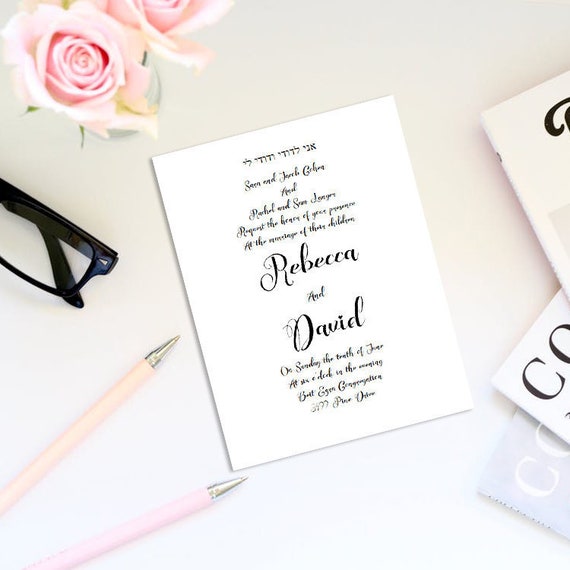 אני לדודי ודודי לי
Sara and Jacob Cohen
And
Rachel and Sam Langer
Request the honor of your presence
At the marriage of their children
Rebecca
And
David
On Sunday the tenth of June
At six o'clock in the morning
Beit Ezra Congregation
3177 Pine Drive
CO
CO